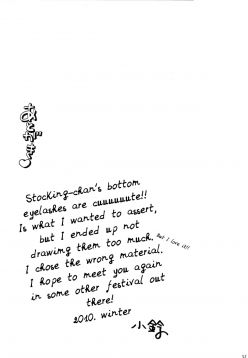 Stocking-chan's bottom
eyelashes are cuuuuuute!!
Is what I wanted to assert,
but I ended up not
drawimg them too much. But I love it!!
I chose the wrong material.
I hope to meet you again
in some other festival out
there!
2010. winter
小鈴